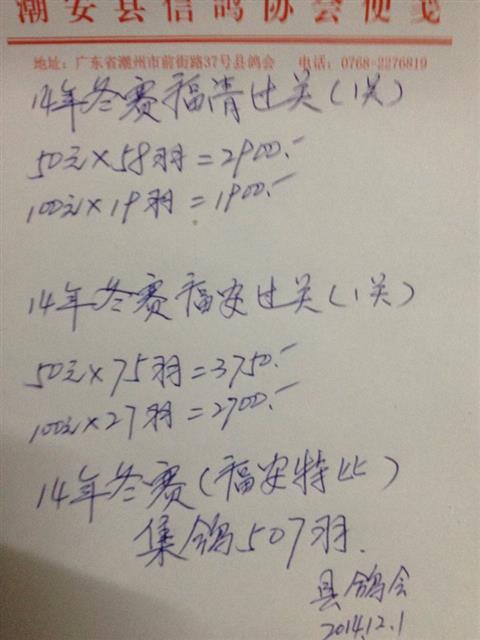 潮安县信鸽协会便笺
地址：广东省潮州市前街路37号县鸽会 电话：0768-2276819
14年冬赛福清过关(1关)
50元×58羽=2900.-
100元×19羽=1900.-
14年冬赛福安过关(1关)
50元×75羽=3750.-
100元×27羽=2700.-
14年冬赛(福安特比)
集鸽507羽.
县鸽会
2014.12.1